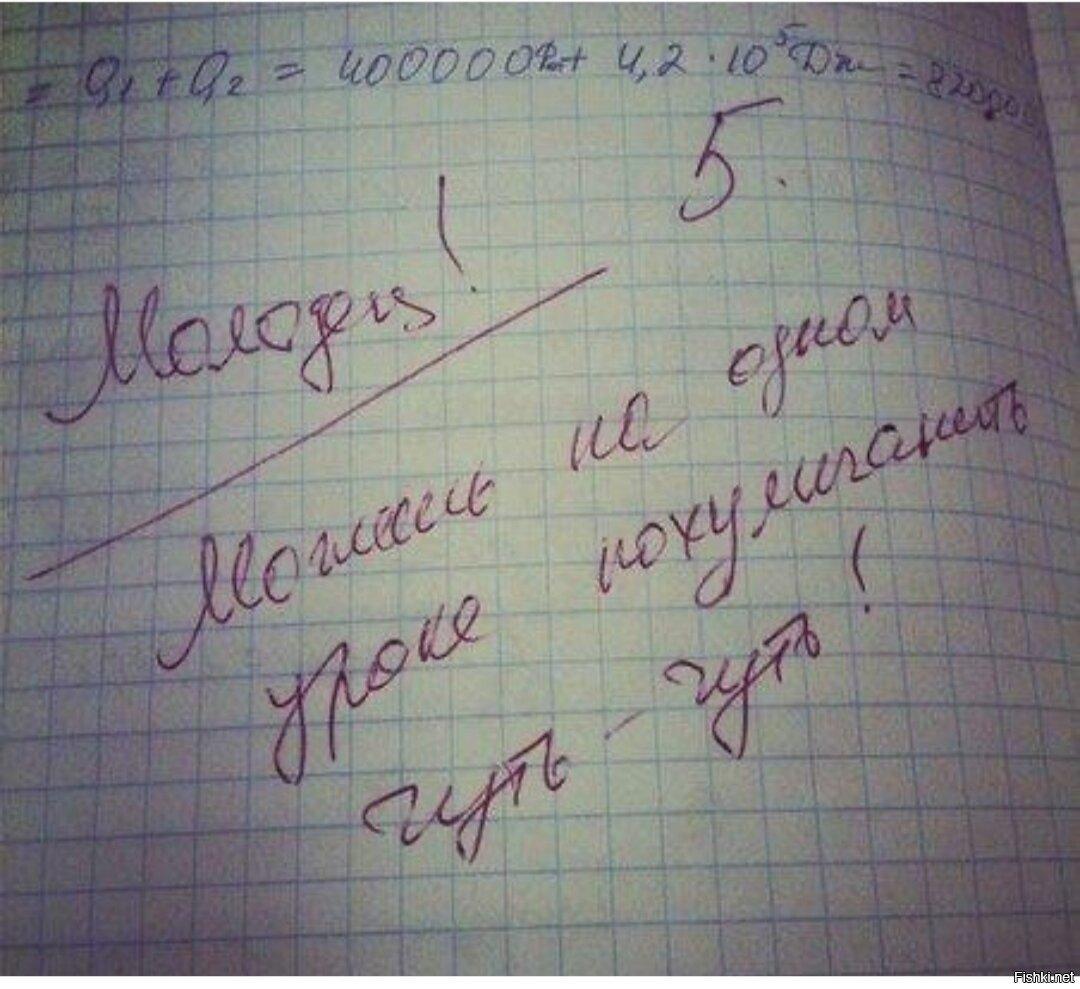 = Q1 + Q2 = 400000Дж + 4,2 · 10⁵ Дж = 820000
5.
Молодец!
Можешь на одном
уроке похулиганить
чуть - чуть!
Fishki.net